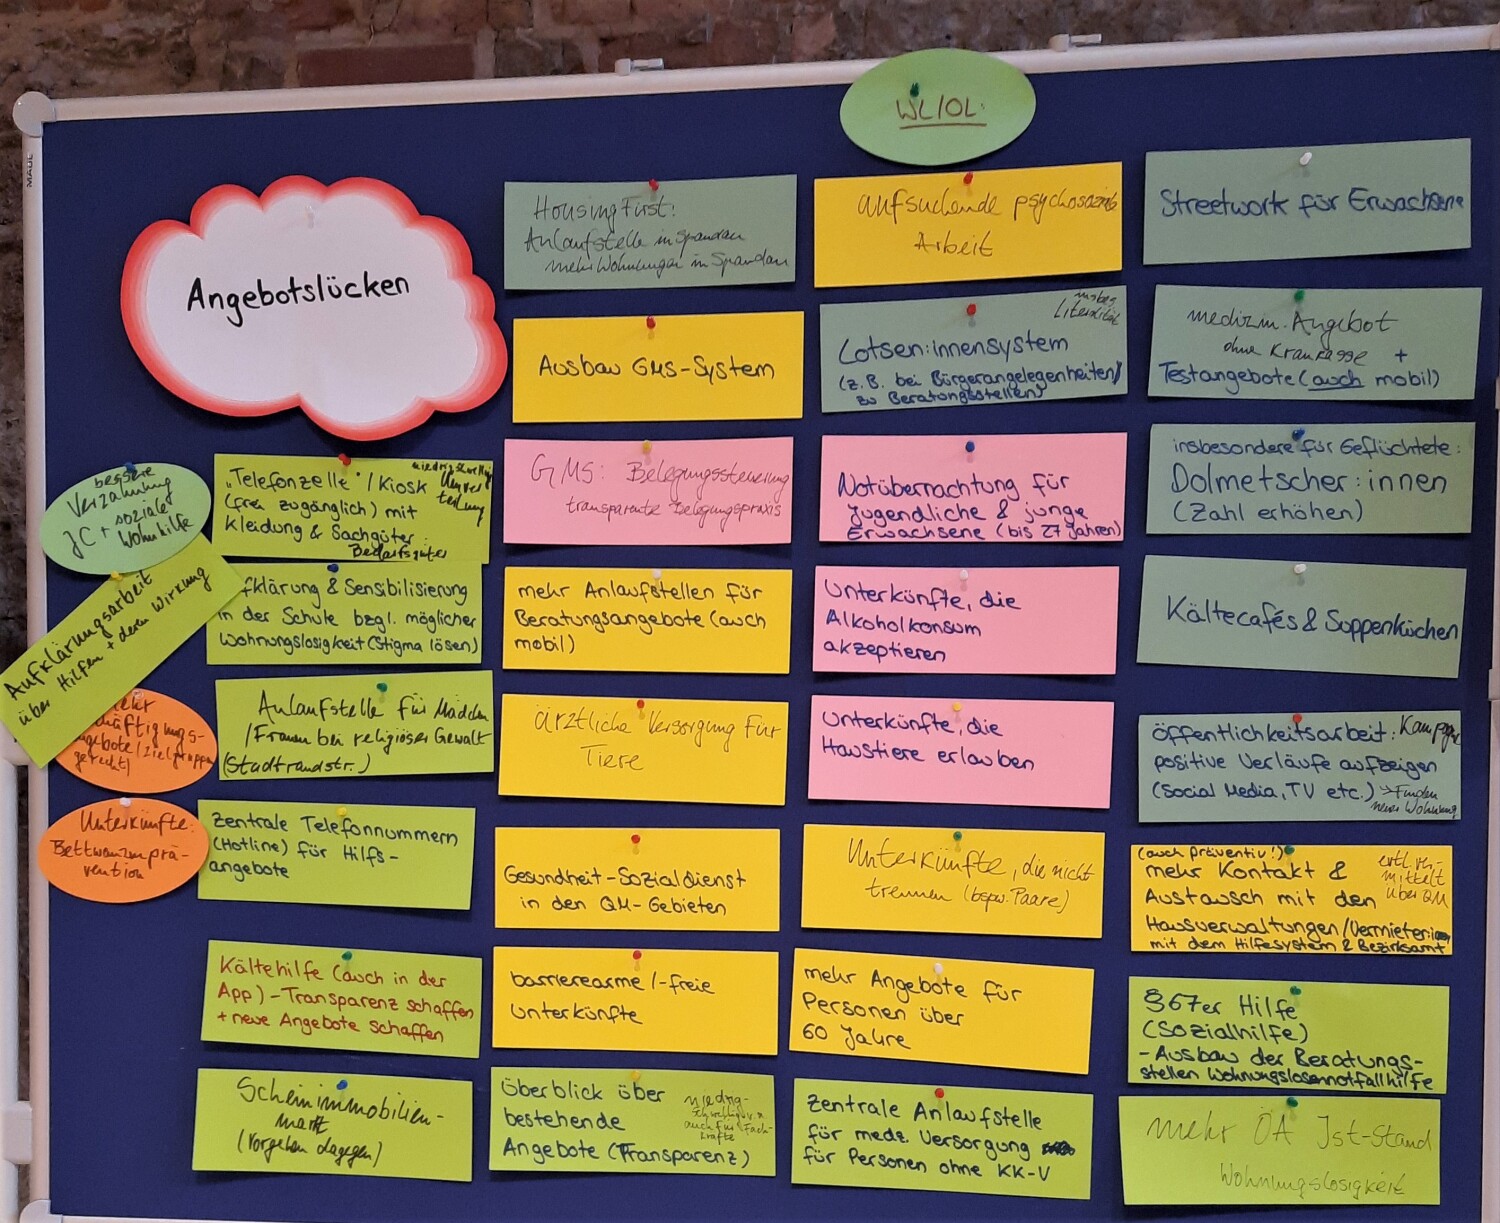 WL/OL:
Angebotslücken
bessere
Verzahnung
JC + soziale
Wohnhilfe
Aufklärungsarbeit
über Hilfen + deren Wirkung
gebote/zielgruppen
gerecht)
Unterkünfte:
Bettwanzenprä-
vention
„Telefonzelle"/Kiosk
(frei zugänglich) mit
Kleidung & Sachgüter
Bedarfsgüter
niedrigschwellig
Umver
teilung
fklärung & Sensibilisierung
in der Schule bzgl. möglicher
Wohnungslosigkeit (Stigma lösen)
Anlaufstelle für Mädchen
/Frauen bei religiöser Gewalt
(Stadtrandstr.)
Zentrale Telefonnummern
(Hotline) für Hilfs-
angebote
Kältehilfe (auch in der
App) - Transparenz schaffen
+ neue Angebote schaffen
Scheinimmobilien-
markt
(Vorgehen dagegen)
Housing First:
Anlaufstelle in Spandau
mehr Wohnungen in Spandau
Ausbau GMS-System
GMS: Belegungssteuerung
transparente Belegungspraxis
mehr Anlaufstellen für
Beratungsangebote (auch
mobil)
ärztliche Versorgung für
Tiere
Gesundheit-Sozialdienst
in den QM-Gebieten
barrierearme/-freie
Unterkünfte
Überblick über
bestehende
Angebote (Transparenz)
niedrig-
schwellig
auch für Fach-
kräfte
aufsuchende psychosoziale
Arbeit
insbes.
Literalität
Lotsen:innensystem
(z.B. bei Bürgerangelegenheiten/
zu Beratungsstellen)
Notübernachtung für
Jugendliche & junge
Erwachsene (bis 27 Jahren)
Unterkünfte, die
Alkoholkonsum
akzeptieren
Unterkünfte, die
Haustiere erlauben
Unterkünfte, die nicht
trennen (bspw. Paare)
mehr Angebote für
Personen über
60 Jahre
Zentrale Anlaufstelle
für mediz. Versorgung
für Personen ohne KK-V
Streetwork für Erwachsene
medizin. Angebot
ohne Krankasse +
Testangebote (auch mobil)
insbesondere für Geflüchtete:
Dolmetscher:innen
(Zahl erhöhen)
Kältecafés & Suppenküchen
Öffentlichkeitsarbeit: Kampagne
positive Verläufe aufzeigen
(Social Media, TV etc.) → Finden
neuer Wohnung
(auch präventiv!)
mehr Kontakt &
Austausch mit den
Hausverwaltungen/Vermieter:in
mit dem Hilfesystem & Bezirksamt
evtl. ver-
mittelt
über QM
§67er Hilfe
(Sozialhilfe)
- Ausbau der Beratungs-
stellen Wohnungslosennotfallhilfe
mehr ÖA Ist-Stand
Wohnungslosigkeit
MAUL